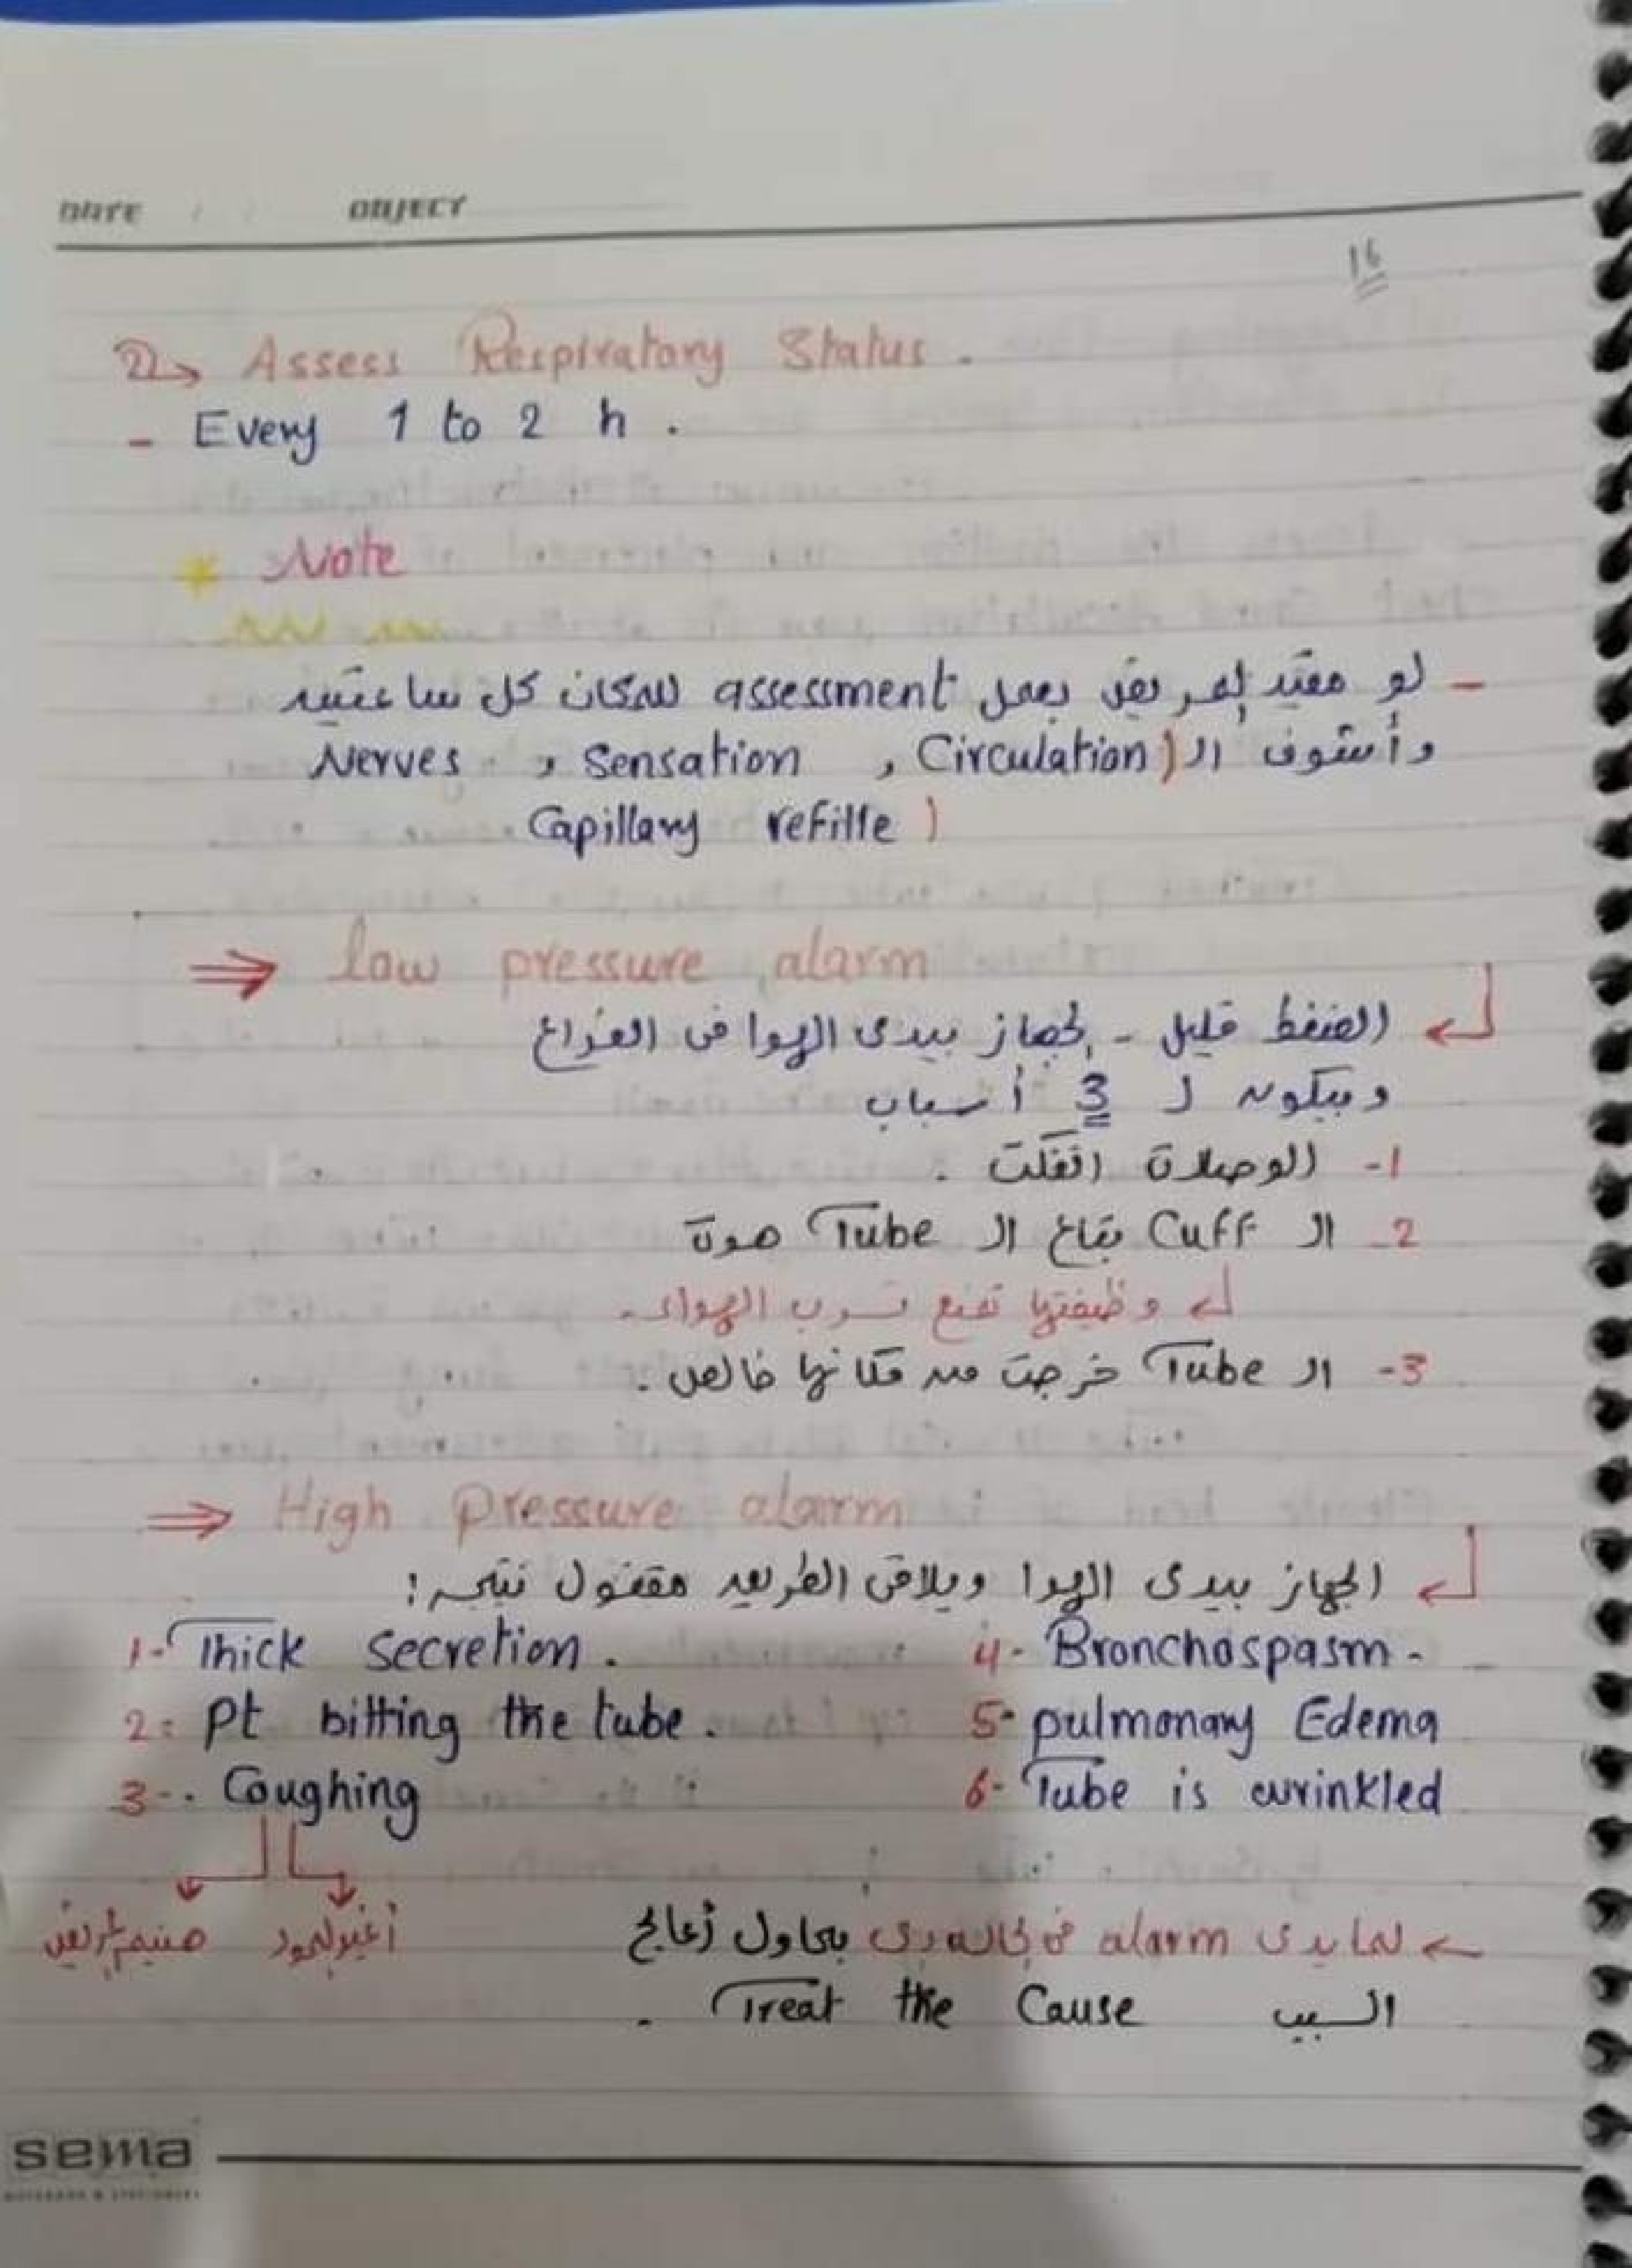 DATE / / OBJECT
16
2 → Assess Respiratory Status .
- Every 1 to 2 h .
* Note
- لو مقيد المريض بعمل assessment للمكان كل ساعتين
وأشوف ال (Circulation , Sensation , Nerves
Capillary refille )
⇒ low pressure alarm
الضغط قليل - الجهاز بيدى الهوا فى الفراغ
وبيكون ل 3 أسباب
1- الوصلات اتفكت .
2- ال Cuff بتاع ال Tube هوت
وظيفتها تمنع تسرب الهواء .
3- ال Tube خرجت من مكانها خالص .
⇒ High Pressure alarm
الجهاز بيدى الهوا ويلاقى الطريق مقفول نتيجه :
1- Thick secretion .
2- Pt bitting the tube .
3- . Coughing
4- Bronchospasm .
5- pulmonary Edema
6- Tube is wrinkled
أغير المود
صنيم المريض
← لما يدى alarm فى الحاله دى بحاول أعالج
السبب Treat the Cause .
sema
NOTEBOOK & STATIONERY